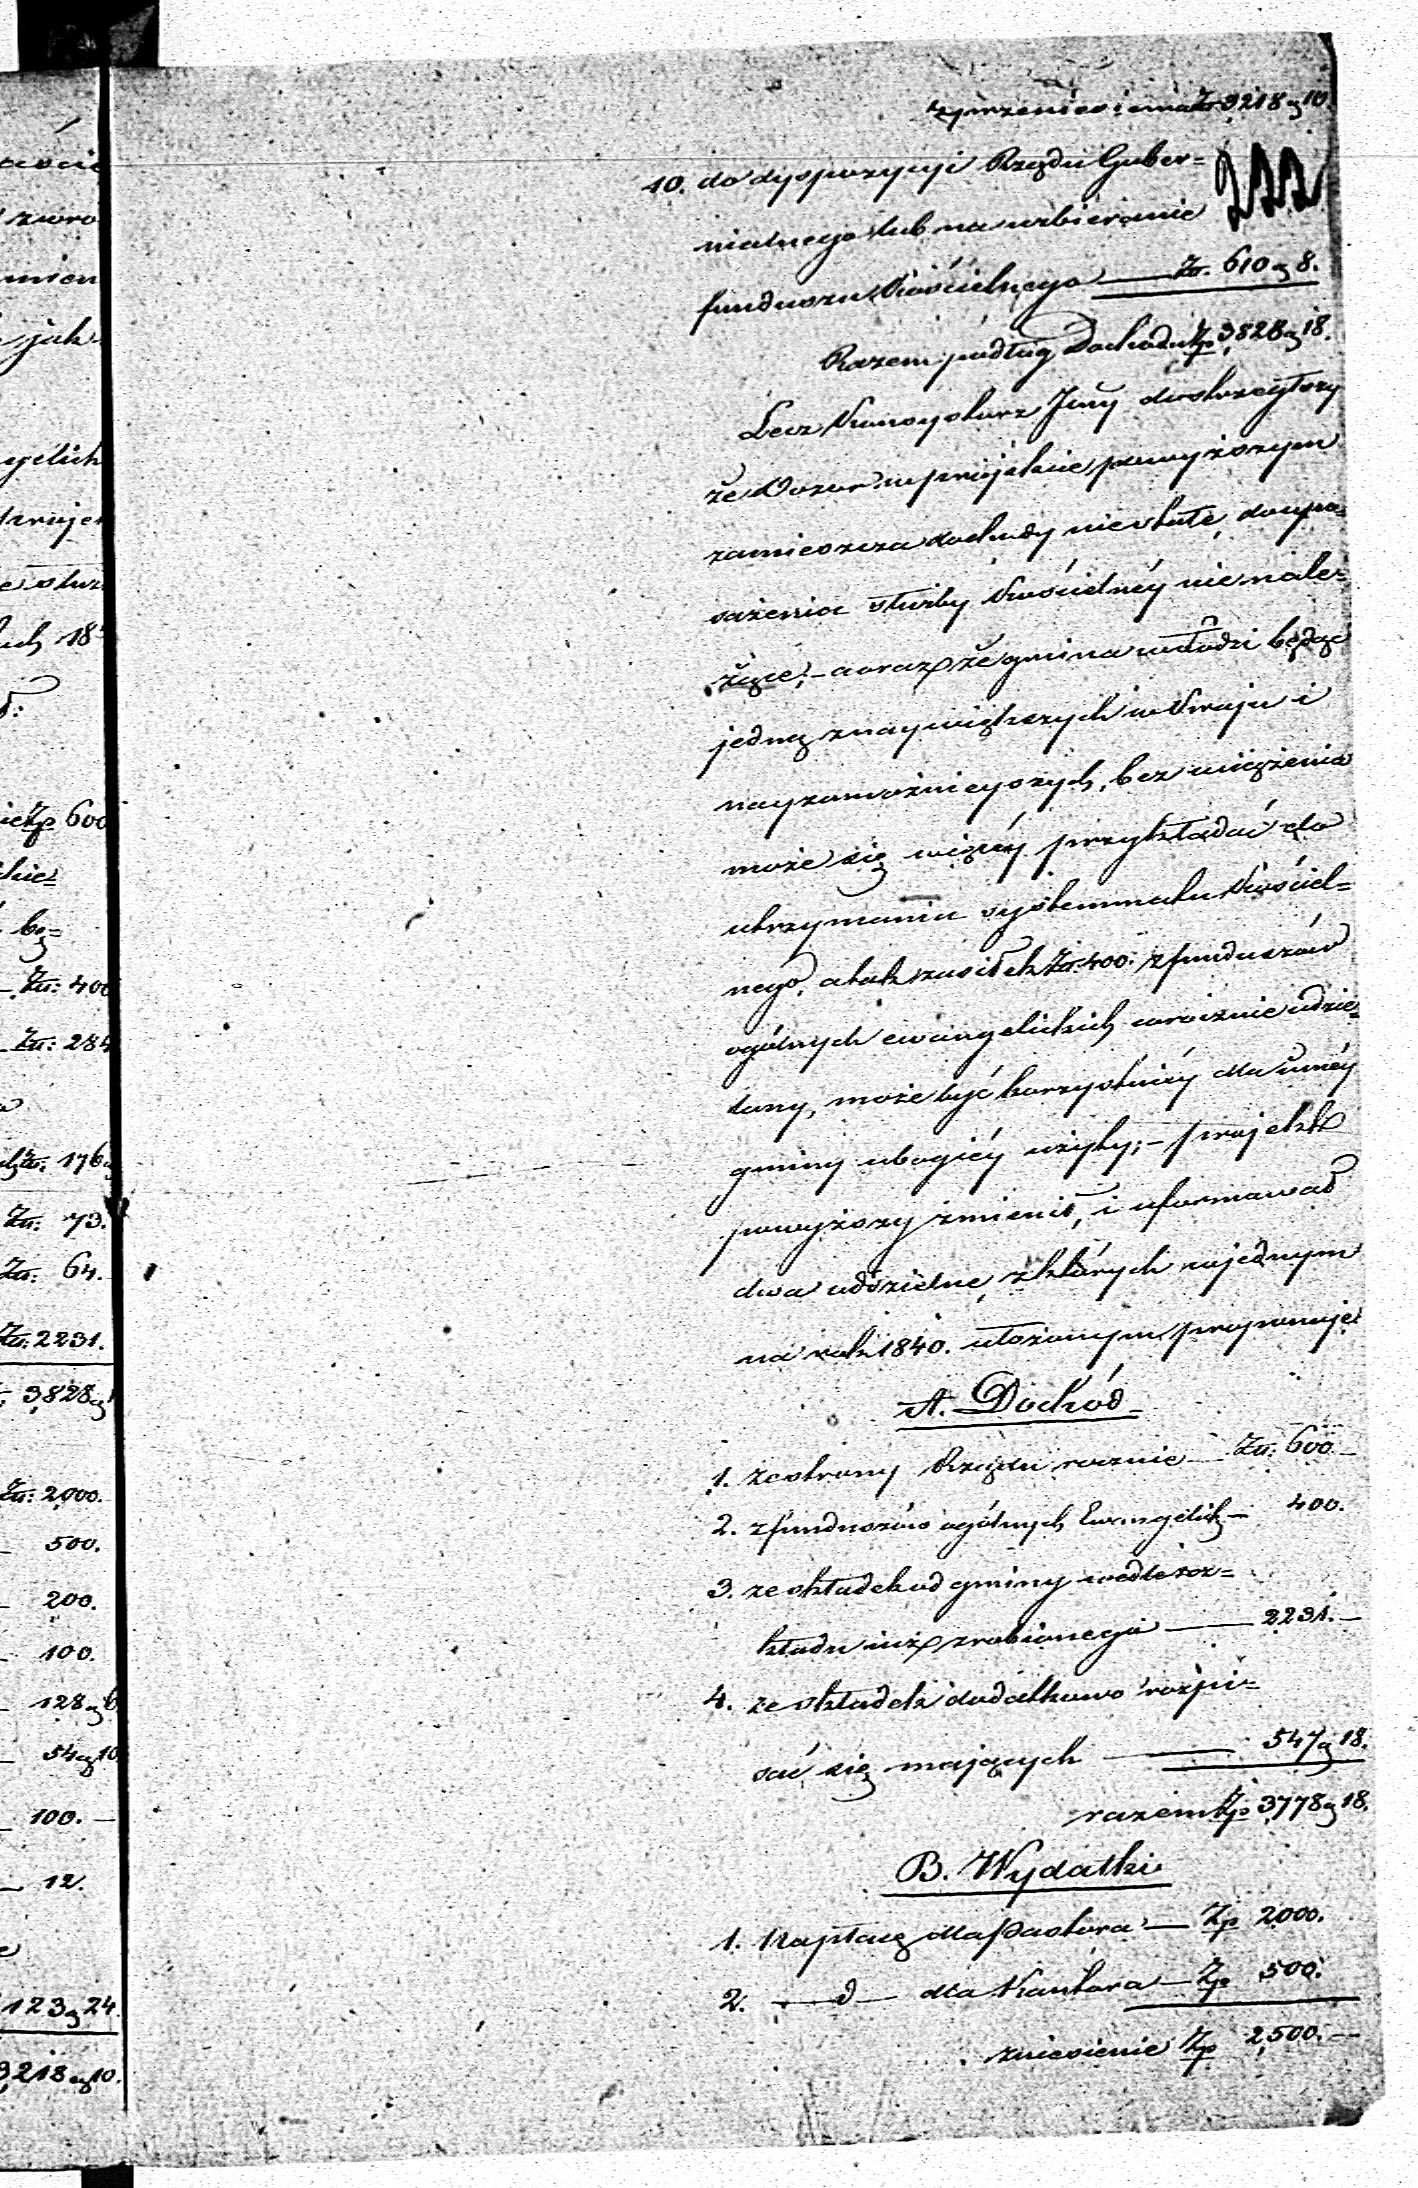 z przeniesienia Zł 3218 g 10
10. do dyspozycyi Rządu Guber=
222
nialnego lub na uzbieranie
funduszu Kościelnego — Zł. 610 g 8.
Razem podług Dochodu Zp 3,828 g 18.
Lecz Konsystorz Jlny dostrzegłszy
że Dozor w projekcie powyższym
zamieszcza dochody niestałe, do upo=
sażenia służby Kościelnéj nie nale=
żące, – a oraz że gmina w Łodzi będąc
jedną z naywiększych w Kraju i
nayzamożnieyszych, bez uciążenia
może się więcéj przykładać do
utrzymania systemmatu Kościel=
nego, a tak zasiłek Zł. 400. z funduszów
ogólnych ewangelickich corocznie udzie=
lany, może być korzystniéj dla innéj
gminy ubogiéj użyty; – projekt
powyższy zmienił, i uformował
dwa udzielne, z których w jednym
na rok 1840. ułożonym proponuje
A. Dochód
1. ze strony Rządu rocznie — Zł. 600 —
2. z funduszów ogólnych Ewangelick — 400.
3. ze składek od gminy wedle roz=
kładu już zrobionego — 2231. —
4. ze składek dodatkowo rozpi=
sać się mających — 547 g 18.
razem Zp 3,778 g 18.
B. Wydatki
1. Na płacę dla Pastora — Zp 2,000.
2. — d — dla Kantora — Zp 500.
zniesienie Zp 2,500. —
zwró
mien
jak
gelick
18
Zp 600
kie=
bę=
Zł: 400
Zł: 284
Zł: 176
Zł: 73.
Zł: 64.
Zł: 2231.
3,828 g 1
Zł: 2,000.
500.
200.
100.
128 g 6
54 g 10
100. —
12.
123 g 24.
3218 g 10.